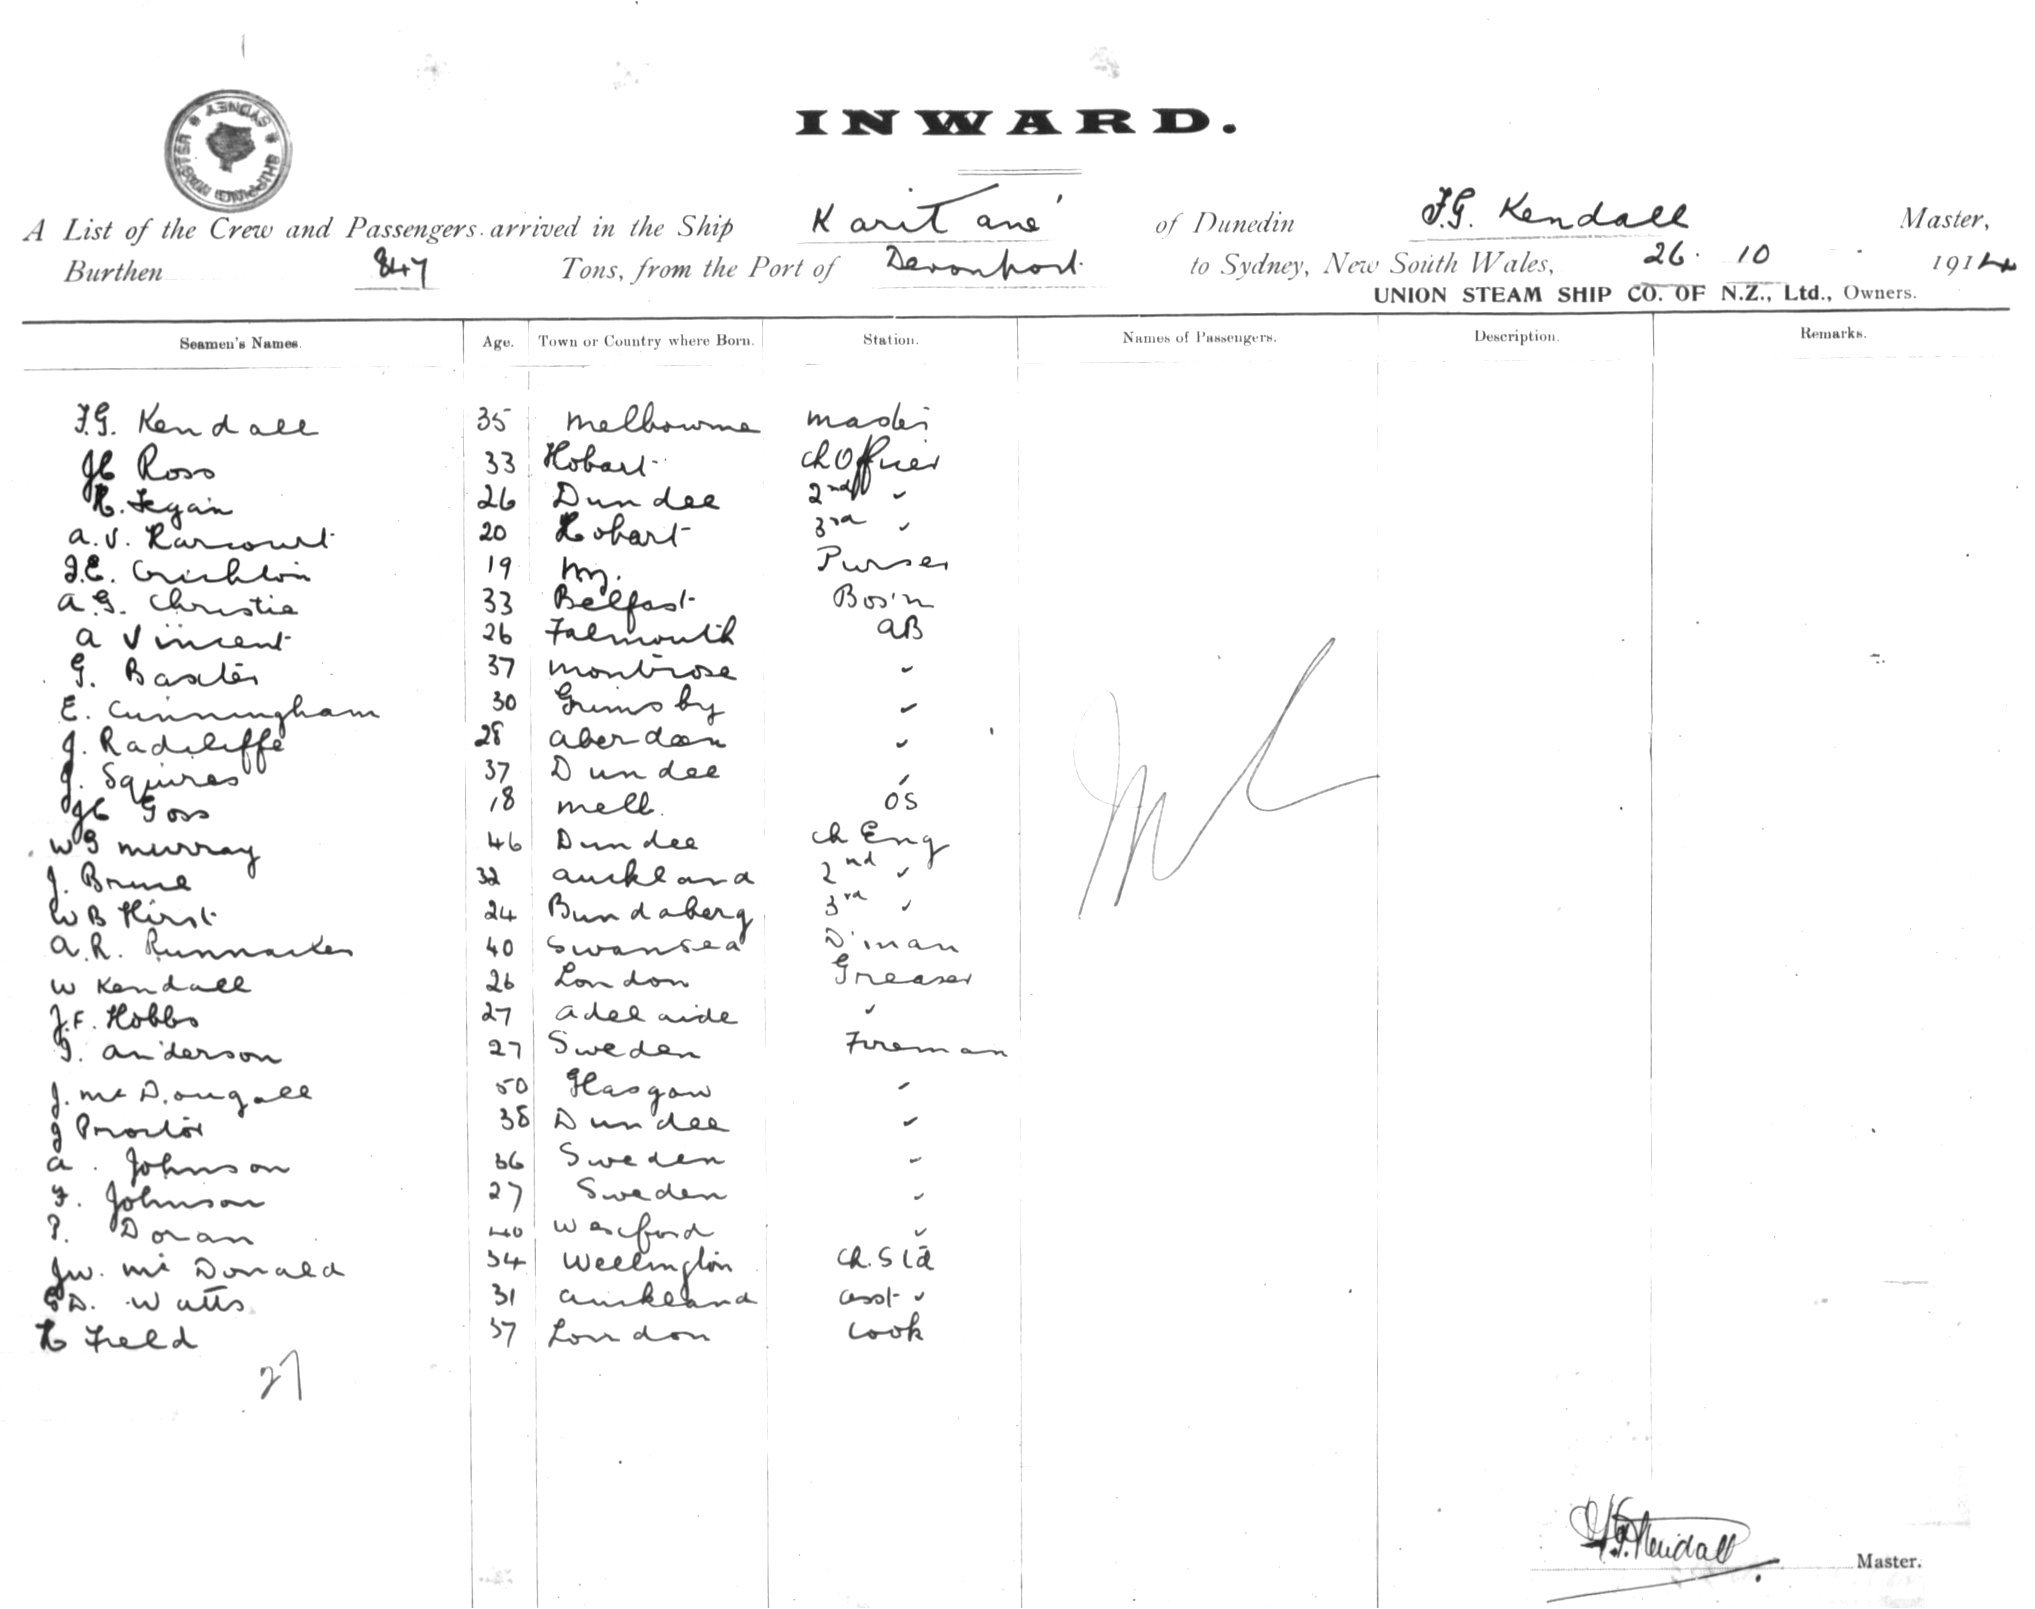 SHIPPING MASTER SYDNEY
INWARD.
A List of the Crew and Passengers arrived in the Ship Karitane of Dunedin F.G. Kendall Master,
Burthen 847 Tons, from the Port of Devonport to Sydney, New South Wales, 26. 10 1914
UNION STEAM SHIP CO. OF N.Z., Ltd., Owners.
Seamen's Names. Age. Town or Country where Born. Station. Names of Passengers. Description. Remarks.
F.G. Kendall 35 Melbourne Master
Ross 33 Hobart Ch Officer
H. Fegan 26 Dundee 2nd "
A.V. Harcourt 20 Hobart 3rd "
J.E. Crichton 19 NZ. Purser
A.G. Christie 33 Belfast Bos'n
A Vincent 26 Falmouth AB
G. Baxter 37 Montrose "
E. Cunningham 30 Grimsby "
J. Radcliffe 28 Aberdeen "
J. Squires 37 Dundee "
Goss 18 Melb. OS
W G Murray 46 Dundee Ch Eng
J. Bruce 32 Auckland 2nd "
W B Hirst 24 Bundaberg 3rd "
A.R. 40 Swansea D'man
W Kendall 26 London Greaser
J.F. Hobbs 27 Adelaide "
Anderson 27 Sweden Fireman
J. McDougall 50 Glasgow "
J Proctor 38 Dundee "
A. Johnson 36 Sweden "
F. Johnson 27 Sweden "
P. Doran 40 Wexford "
J.W. McDonald 34 Wellington Ch. Std
Watts 31 Auckland Asst "
H Field 37 London Cook
27
Nil
F.G. Kendall Master.